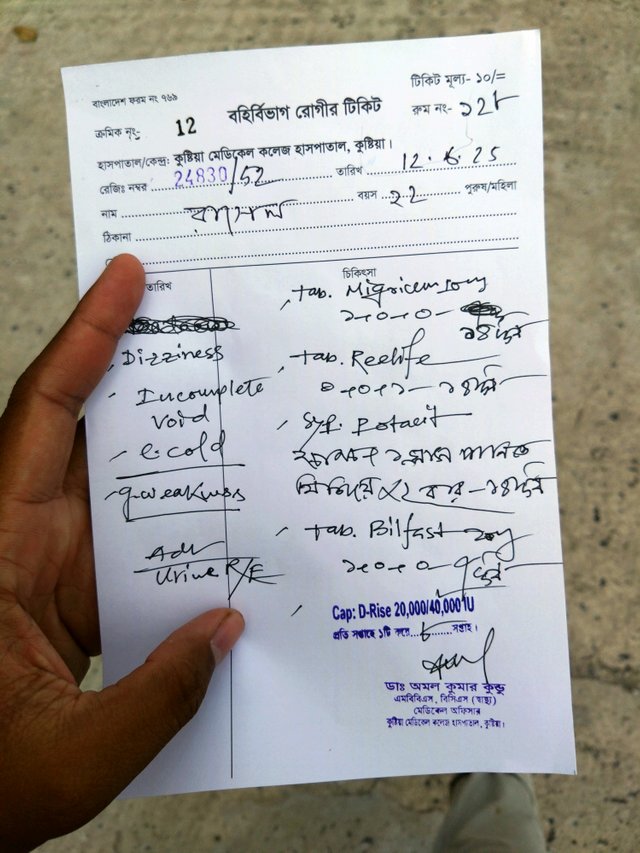 বাংলাদেশ ফরম নং ৭৬৯
টিকিট মূল্য- ১০/=
বহির্বিভাগ রোগীর টিকিট
ক্রমিক নং- 12
রুম নং- ১২৮
হাসপাতাল/কেন্দ্র: কুষ্টিয়া মেডিকেল কলেজ হাসপাতাল, কুষ্টিয়া।
রেজিঃ নম্বর 24830/52 তারিখ 12.6.25
নাম বয়স ২২ পুরুষ/মহিলা
ঠিকানা
তারিখ
Dizziness
Incomplete
void
e. cold
g. weakness
Adv
Urine R/E
চিকিৎসা
Tab. Migricen 10mg
১-০-০-
১৪ দিন
Tab. Reelife
০-০-১- ১৪ দিন
Syp. Potacit
১ গ্লাস পানিতে
মিশিয়ে ২ বার - ১৪ দিন
Tab. Bilfast 20mg
১-০-০- ৭ দিন
Cap: D-Rise 20,000/40,000 IU
প্রতি সপ্তাহে ১টি করে...৮...সপ্তাহ।
ডাঃ অমল কুমার কুন্ডু
এমবিবিএস, বিসিএস (স্বাস্থ্য)
মেডিকেল অফিসার
কুষ্টিয়া মেডিকেল কলেজ হাসপাতাল, কুষ্টিয়া।